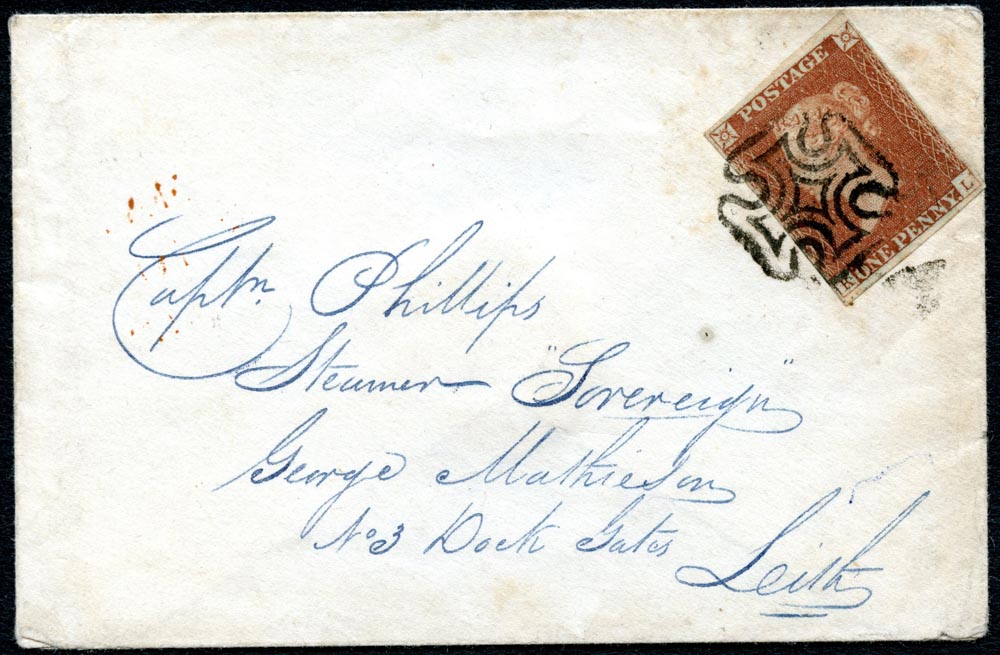 POSTAGE
ONE PENNY.
K L
Captn. Phillips
Steamer "Sovereign"
George Mathieson
No 3 Dock Gates
Leith